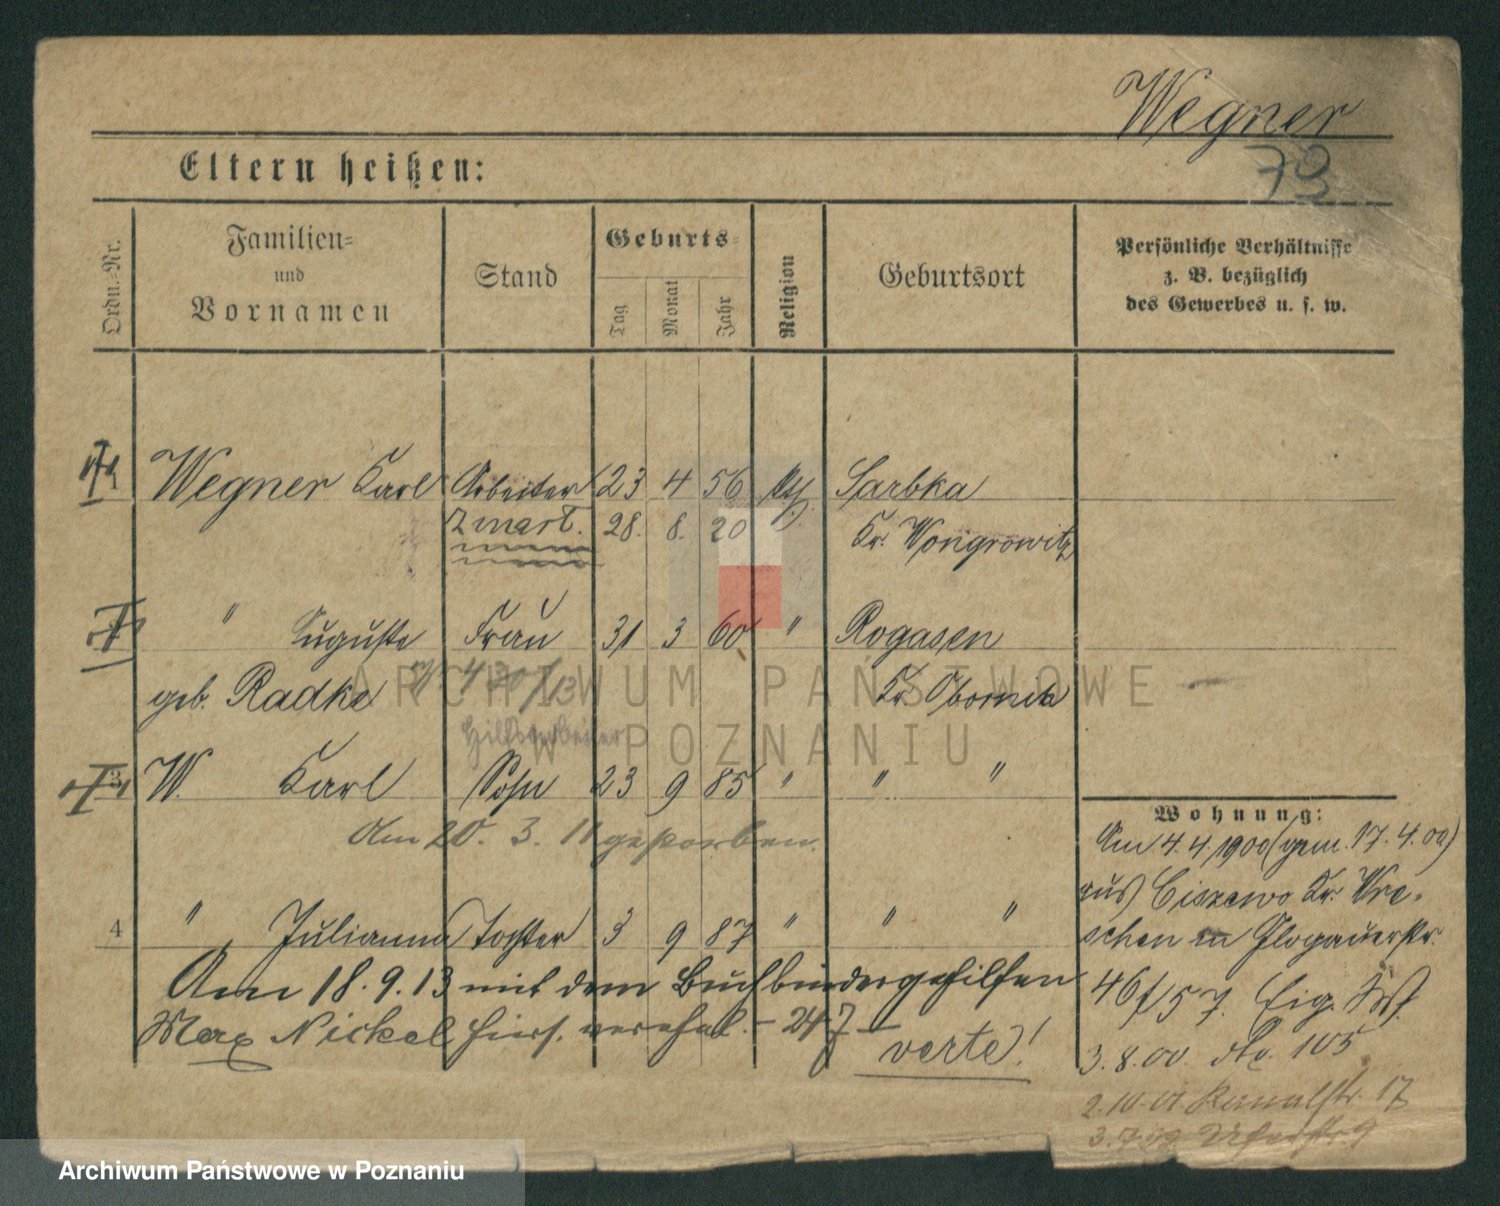 Wegner
73
Eltern heißen:
Ordn.-Nr.
Familien-
und
Vornamen
Stand
Geburts-
Tag
Monat
Jahr
Religion
Geburtsort
Persönliche Verhältnisse
z. B. bezüglich
des Gewerbes u. s. w.
Wegner Karl Arbeiter 23 4 56 Sarbka
28. 8. 20 Kr. Wongrowitz
" Auguste Frau 31 3 60 " Rogasen
geb. Radke Kr. Obornik
Hilfsarbeiter
3 W. Karl Sohn 23 9 85 " " "
Am 20. 3. 11 gestorben.
4 " Julianna Tochter 3 9 87 " " "
Am 18. 9. 13 mit dem Buchbindergehilfen
Max Nickel hiers. verehel. – 247 –
verte!
Wohnung:
Am 4. 4. 1900 (gem. 17. 4. 00)
aus Ciszewo Kr. Wre-
schen in Glogauerstr.
3. 8. 00 105
2. 10. 01 Kanalstr. 17
ARCHIWUM PAŃSTWOWE
W POZNANIU
Archiwum Państwowe w Poznaniu